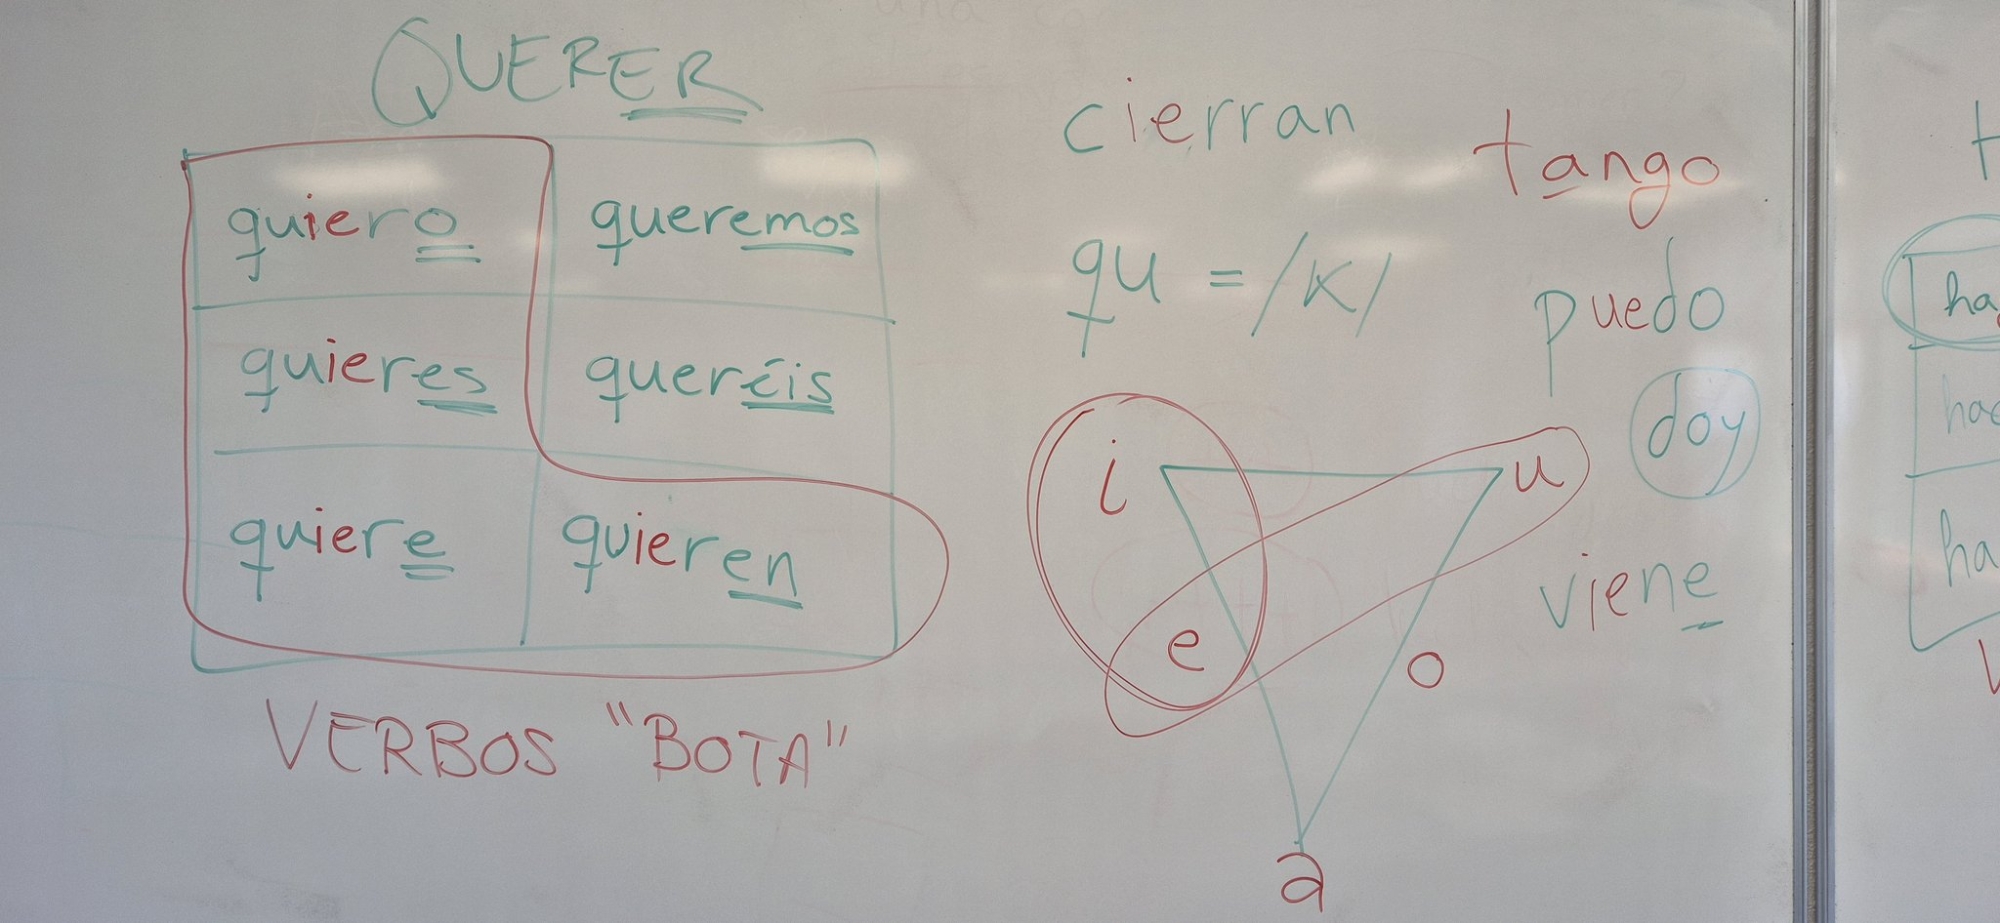 QUERER
quiero queremos
quieres queréis
quiere quieren
VERBOS "BOTA"
cierran
qu = /K/
tango
puedo
doy
viene
i u
e o
a